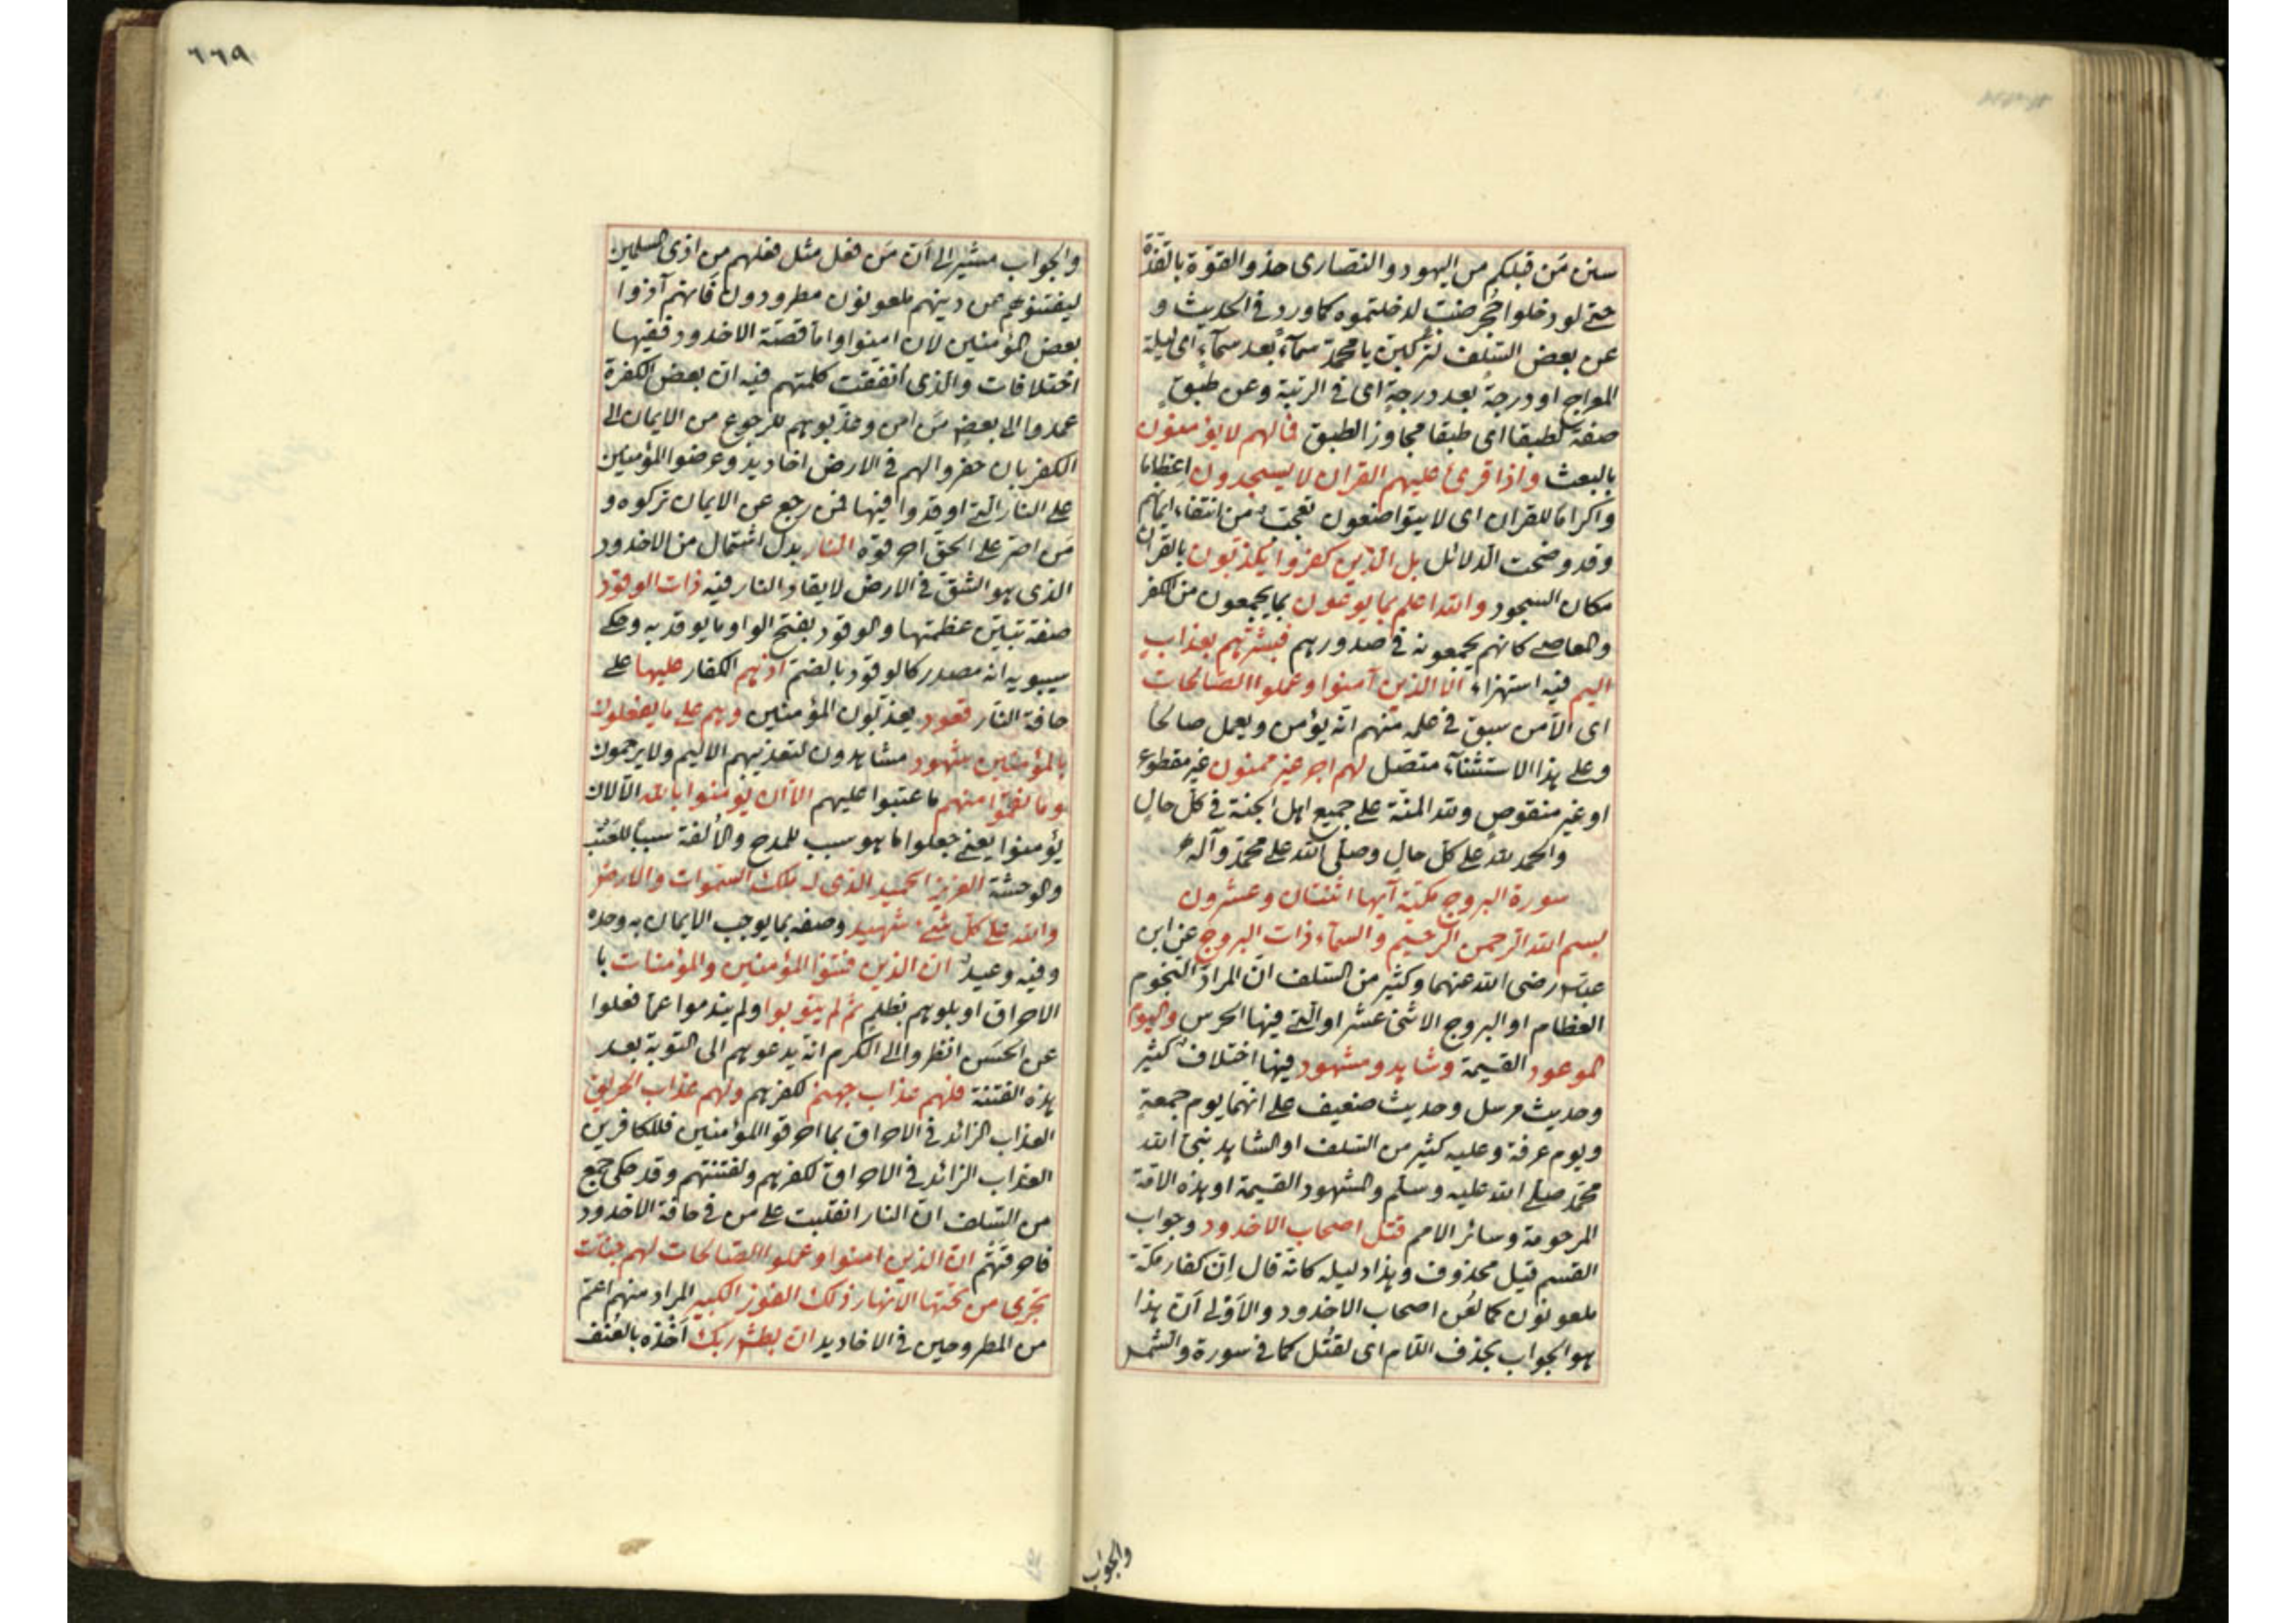 سنن مَن قبلكم من اليهود والنصارى حذو القذة بالقذة
حتى لو دخلوا حُجر ضب لدخلتموه كما ورد في الحديث و
عن بعض السلف لتركبن يا محمد سمآءً بعد سمآءٍ اى ليلة
المعراج او درجةً بعد درجةٍ اى في الرتبة وعن طبقٍ
صفة لطبقا اى طبقا مجاوز الطبق فما لهم لا يؤمنون
بالبعث واذا قرئ عليهم القران لا يسجدون اعظاما
واكراما للقران اى لا يتواضعون تعجب من انتفاء ايمانهم
وقد وضحت الدلائل بل الذين كفروا يكذبون بالقران
مكان السجود والله اعلم بما يوعون بما يجمعون من الكفر
والمعاصى كانهم يجمعونه في صدورهم فبشرهم بعذاب
اليم فيه استهزاء الّا الذين آمنوا وعملوا الصالحات
اى الّا من سبق في علمه منهم انه يؤمن ويعمل صالحا
وعلى هذا الاستثنآء متصل لهم اجر غير ممنون غير مقطوع
او غير منقوصٍ ولله المنّة على جميع اهل الجنة في كل حالٍ
والحمد لله على كل حالٍ وصلى الله على محمد وآله
سورة البروج مكية آيها اثنتان وعشرون
بسم الله الرحمن الرحيم والسمآء ذات البروج عن ابن
عباس رضى الله عنهما وكثير من السلف انّ المراد النجوم
العظام او البروج الاثنى عشر او التى فيها الحرس واليوم
الموعود القيمة وشاهد ومشهود فيها اختلافٌ كثير
وحديث مرسل وحديث ضعيف على انهما يوم جمعةٍ
ويوم عرفة وعليه كثير من السلف او الشاهد نبىّ الله
محمّد صلى الله عليه وسلم والمشهود القيمة او هذه الامة
المرحومة وسائر الامم قتل اصحاب الاخدود وجواب
القسم قيل محذوف وهذا دليله كانه قال اِنّ كفار مكّة
ملعونون كما لُعن اصحاب الاخدود والاَولى اَنّ هذا
هو الجواب بحذف اللام اى لقُتل كما في سورة والشمس
والجواب
٦٦٩
والجواب مشير الى اَنّ مَن فعل مثل فعلهم من اذى المسلمين
ليفتنوهم عن دينهم ملعونون مطرودون فانهم آذوا
بعض المؤمنين لان امنوا واما قصّة الاخدود ففيها
اختلافات والذى اتفقت كلمتهم فيه ان بعض الكفرة
عمدوا الى بعضِ مَن امن وعذبوهم للرجوع من الايمان الى
الكفر بان حفروا لهم في الارض اخاديد وعرضوا المؤمنين
على النار التى اوقدوا فيها فمن رجع عن الايمان تركوه و
مَن اصرّ على الحق احرقوه النار بدل اشتمال من الاخدود
الذى هو الشق في الارض لايقاد النار فيه ذات الوقود
صفة تبيّن عظمتها والوقود بفتح الواو ما يوقد به وحكى
سيبويه انه مصدر كالوقود بالضم اذ هم الكفار عليها على
حافة النار قعود يعذبون المؤمنين وهم على ما يفعلون
بالمؤمنين شهود مشاهدون لتعذيبهم الاليم ولا يرحمون
وما نقموا منهم ما عتبوا عليهم الا ان يؤمنوا بالله الا لان
يؤمنوا يعنى جعلوا ما هو سبب للمدح والالفة سببا للعتب
والوحشة العزيز الحميد الذى له ملك السموات والارض
والله على كل شئ شهيد وصفه بما يوجب الايمان به وحده
وفيه وعيدٌ ان الذين فتنوا المؤمنين والمؤمنات با
لاحراق او بلوهم بظلم ثم لم يتوبوا ولم يندموا عما فعلوا
عن الحسَن انظروا الى الكرم انه يدعوهم الى التوبة بعد
هذه الفتنة فلهم عذاب جهنم لكفرهم ولهم عذاب الحريق
العذاب الزائد في الاحراق بما احرقوا المؤمنين فللكافرين
العذاب الزائد في الاحراق لكفرهم ولفتنتهم وقد حكى جمع
من السلف انّ النار انقلبت على من في حافة الاخدود
فاحرقتهُم ان الذين امنوا وعملوا الصالحات لهم جنّات
تجرى من تحتها الانهار ذلك الفوز الكبير المراد منهم اعمّ
من المطروحين في الاخاديد ان بطش ربك اَخْذه بالعُنف